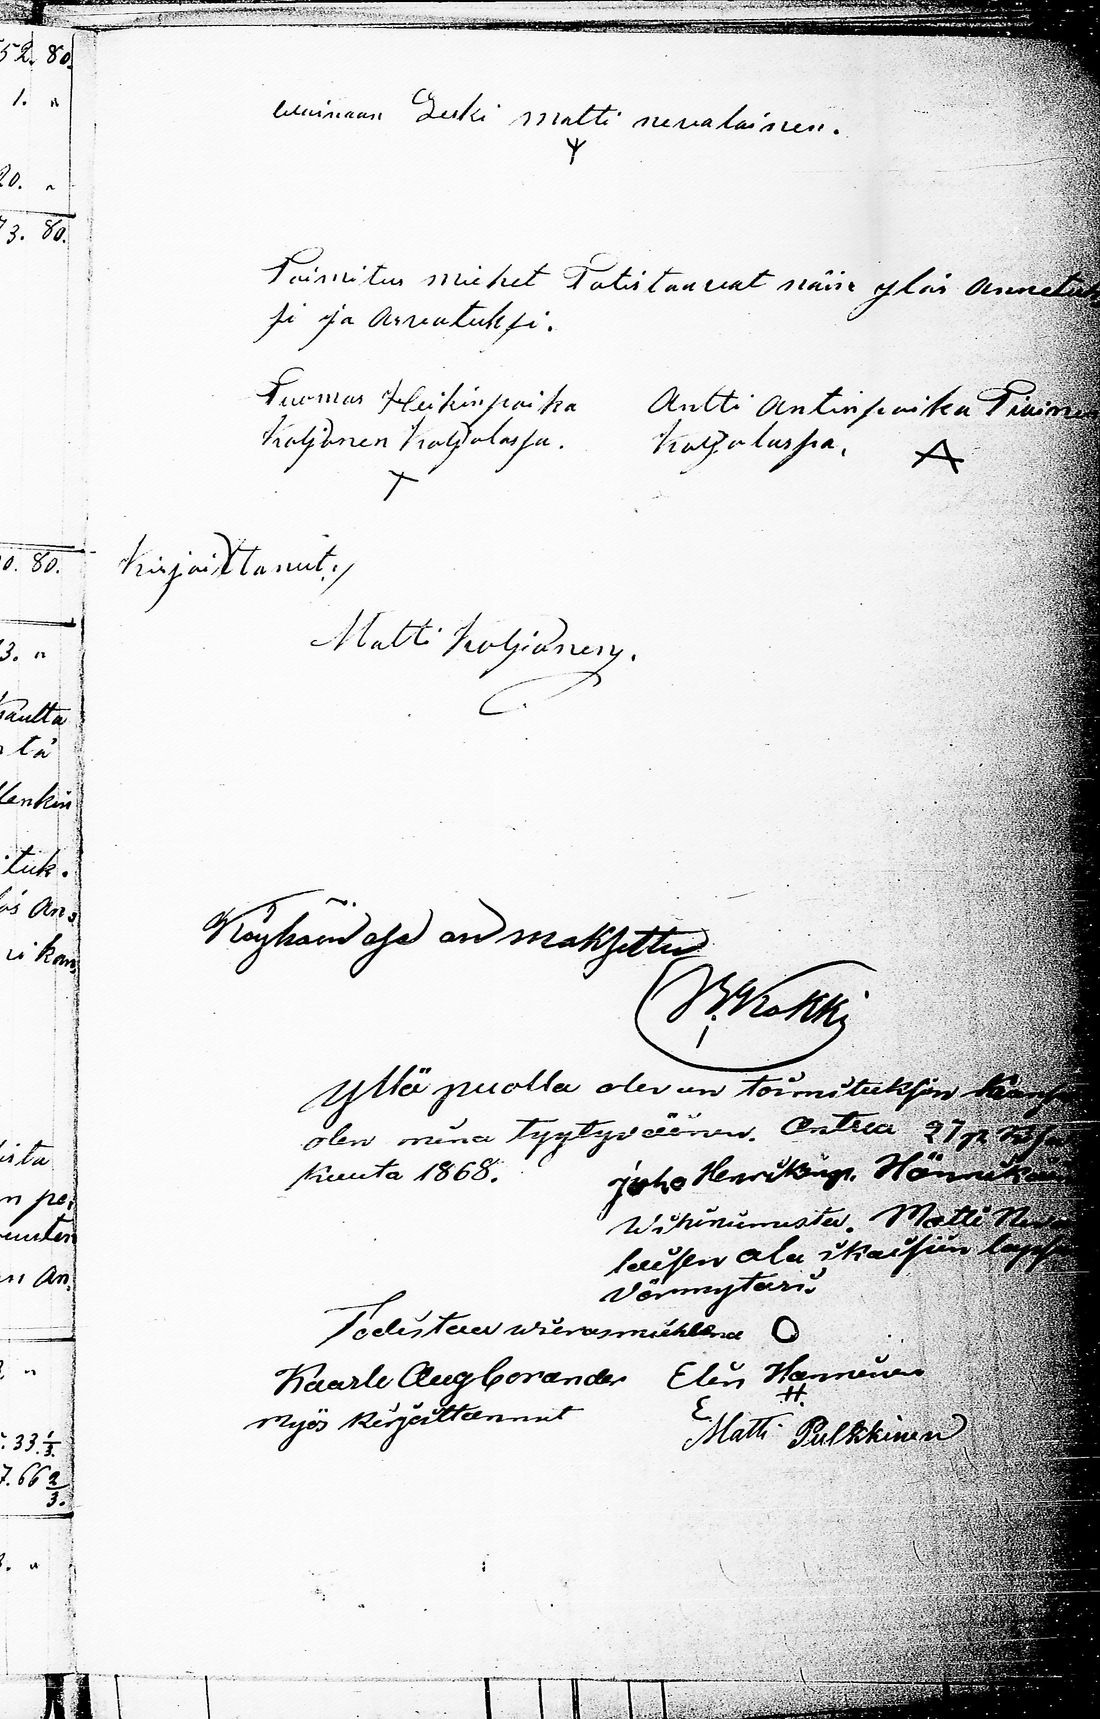 52. 80.
1. "
20. "
73. 80.
0. 80.
3. "
kautta
tä
Henkin
ituk.
ös An=
ni kan
ista
n pe=
uuten
n An=
"
33 1/3.
7. 66 2/3.
3. "
wainaan Leski matti nevalainen.
Toimitus miehet Totistaavat näin ylös Annetuk
si ja Arvatuksi.
Tuomas Heikinpoika
Koljonen Koljolassa.
Antti Antinpoika Tiainen
Koljolassa.
Kirjoittanut:/
Matti Koljonen.
Köyhäin osa on maksettu
Kokki
Yllä puolla olevan toimituksen kanssa
olen minä tyytyväinen. Antrea 27 p:
kuuta 1868.
juho Henrikinp. Hännikäin
Matti Neva
laisen ala ikäisiin lapsi
Vörmytäri
Todistaa wierasmiehenä O
Kaarle Aug Corander
myös kirjoittannut
Elin Hannunen
H
E
Matti Pulkkinen